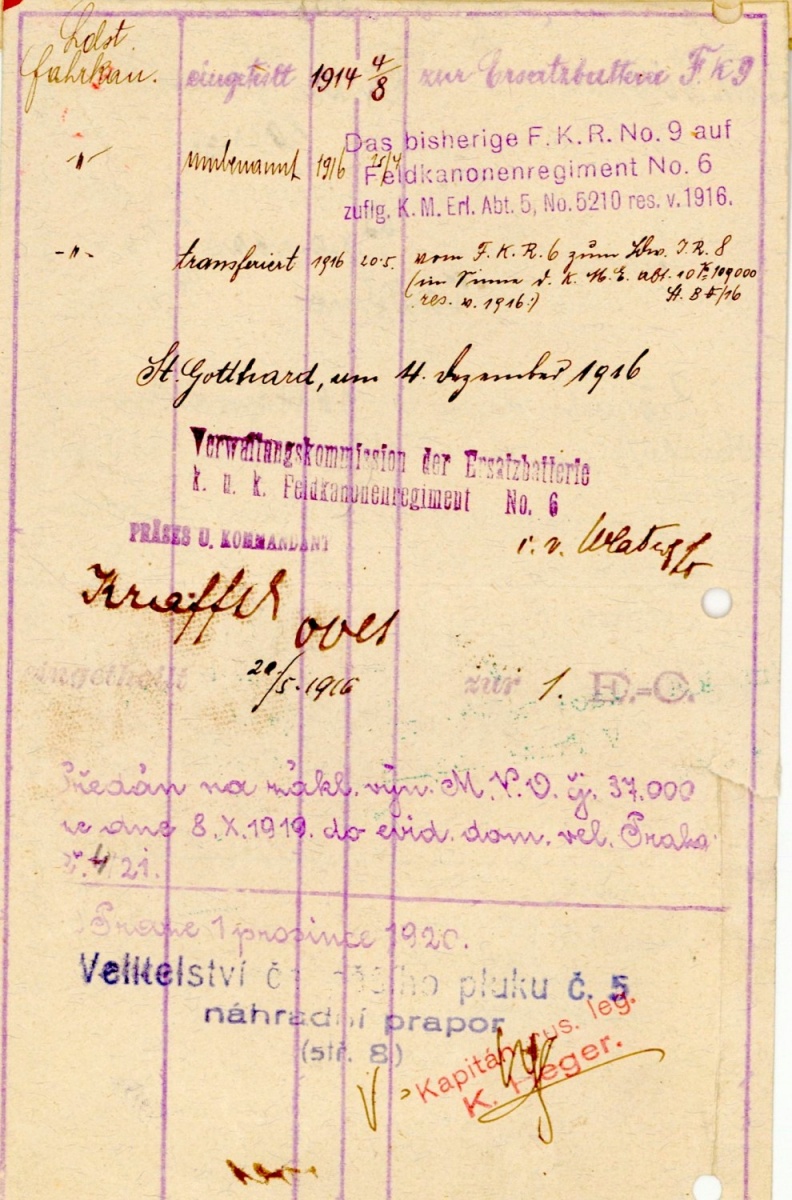 Ldst.
fahrkan. eingeteilt 1914 4/8 zur Ersatzbatterie F K 9
-"- umbenannt 1916 Das bisherige F. K. R. No. 9 auf
Feldkanonenregiment No. 6
zuflg. K. M. Erl. Abt. 5, No. 5210 res. v. 1916.
-"- transferiert 1916 20.5. vom F. K. R. 6 zum Ldw. I. R. 8
(im Sinne d. K. M. E. abt. 10 109000
res. v. 1916.)
St. Gotthard, am 4. Dezember 1916
Verwaltungskommission der Ersatzbatterie
k. u. k. Feldkanonenregiment No. 6
PRÄSES U. KOMMANDANT
i. v.
eingetheilt 20/5. 1916 zur 1. E.=C.
Předán na zákl. výn. M. N. O. čj. 37.000
ze dne 8. X. 1919. do evid. dom. vel. Praha
21.
Praze 1 prosince 1920.
Velitelství pluku č. 5
náhradní prapor
(stř. 8)
Kapitán rus. leg.
K. Heger.